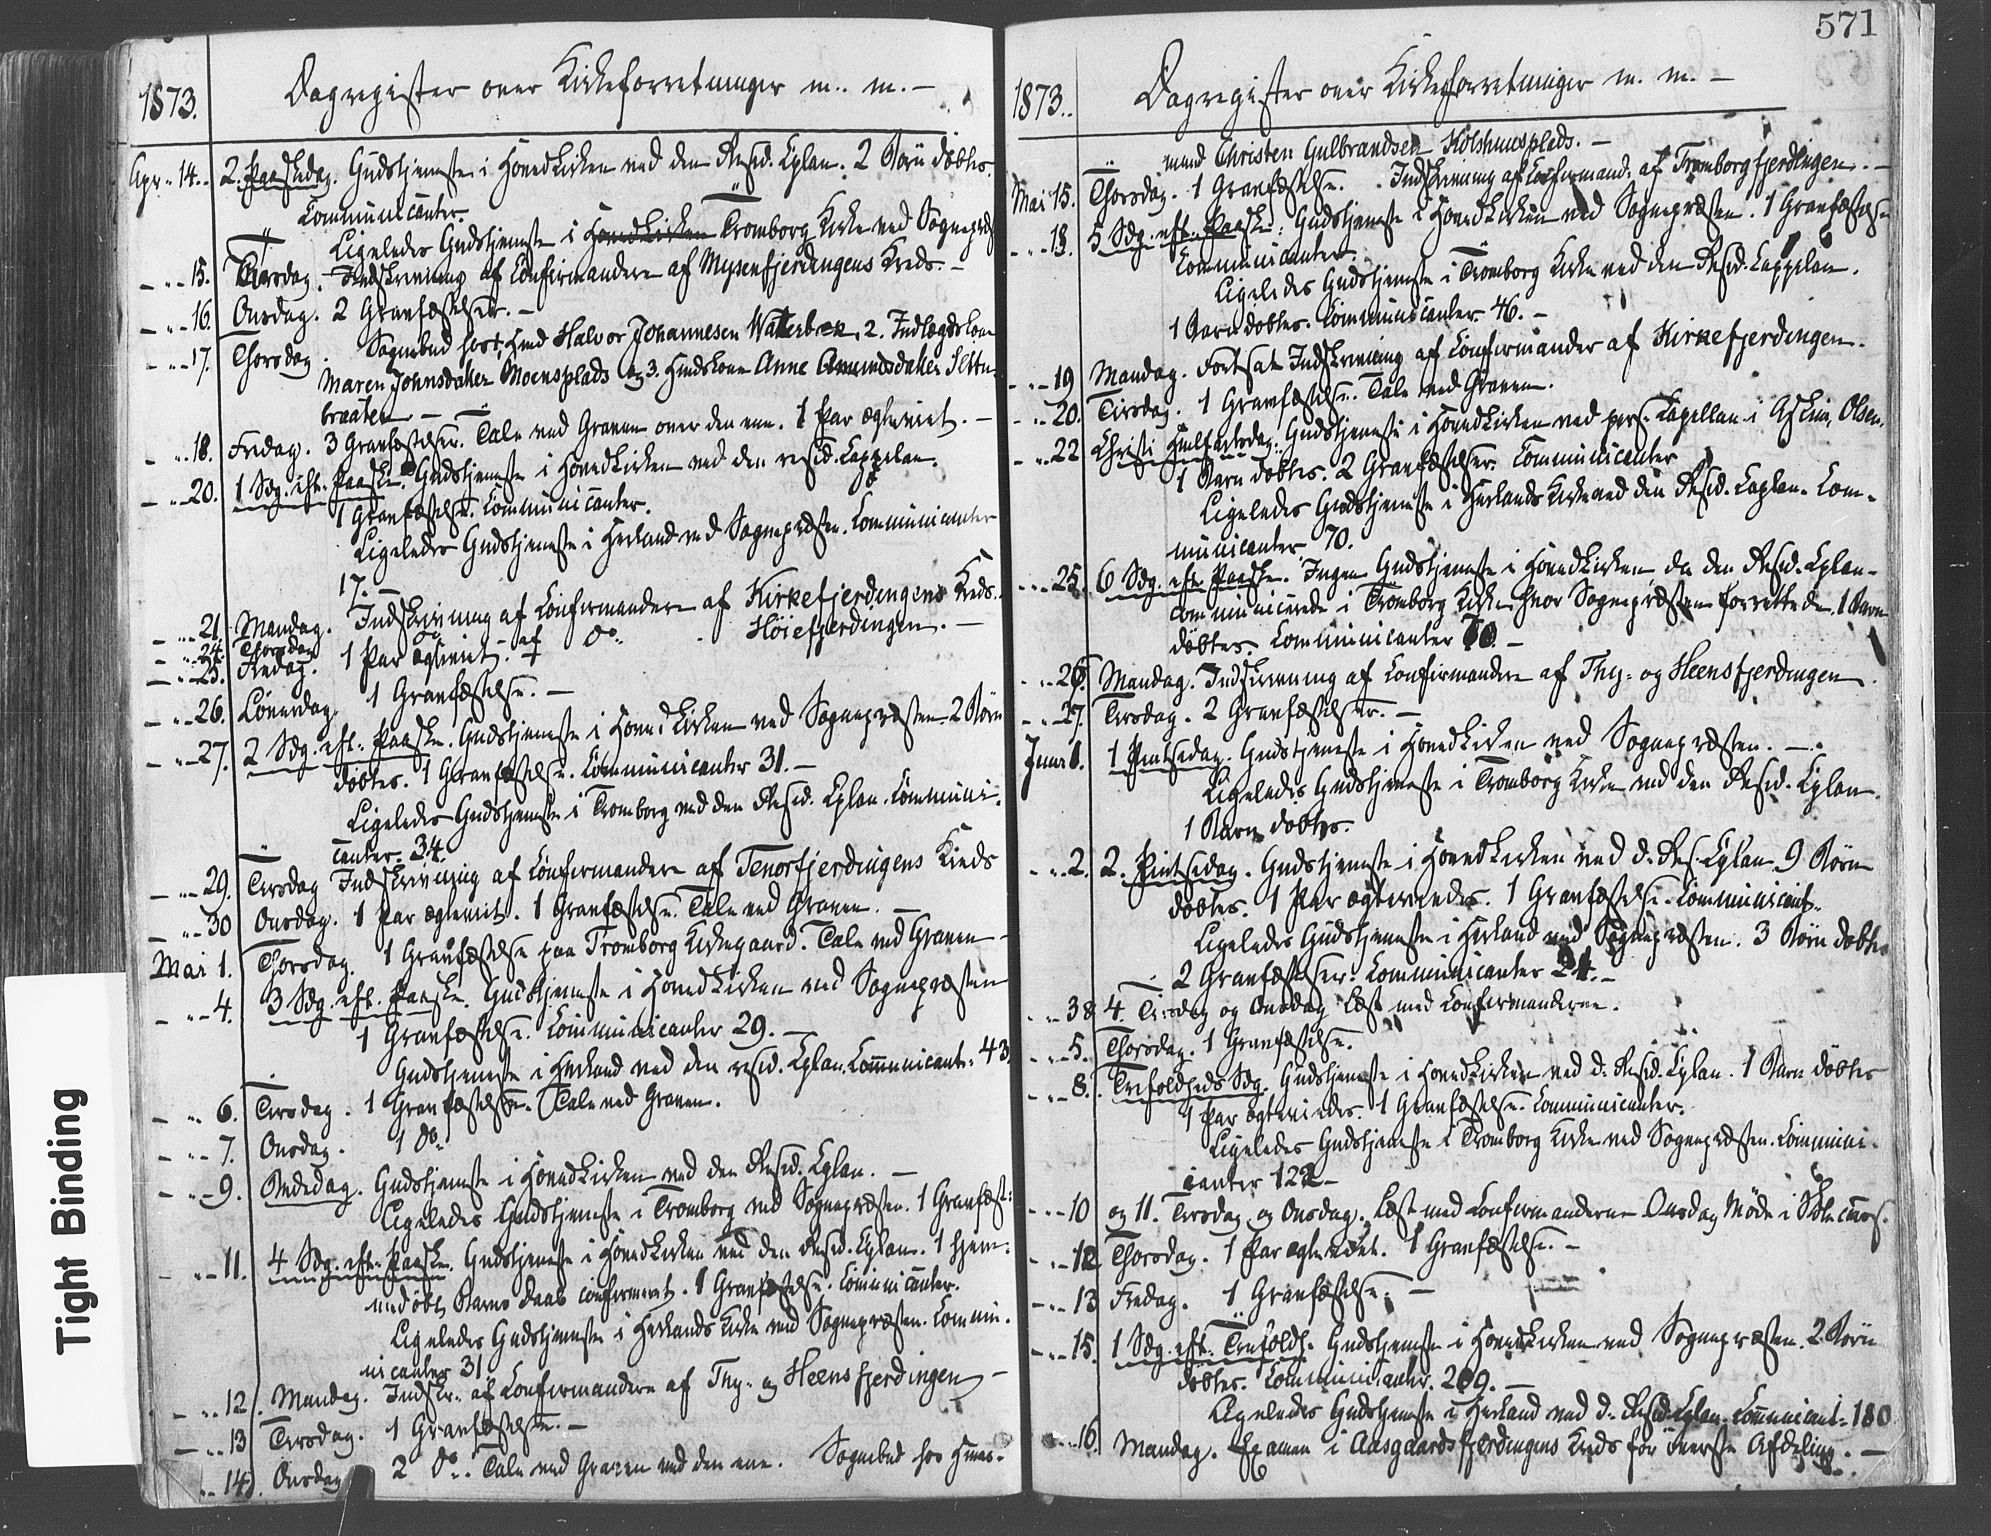 1873.
Dagregister over Kirkeforretninger m. m. –
Apr. 14. 2. Paaskedag. Gudstjeneste i Hovedkirken ved den Resid. Cplan. 2 Börn döbtes.
Communicanter.
Ligeledes Gudstjeneste i Hovedkirken Tromborg Kirke ved Sognepræst
– " – 15. Tirsdag. Indskrivning af Confirmandere af Mysenfjerdingens Kreds. –
– " – 16. Onsdag. 2 Gravfæstelser. –
– " – 17. Thorsdag. Sognebud hos 1, Hmd Halvor Johannesen Waterbæk, 2. Indlægdskone
Maren Johnsdatter Moensplads og 3. Huuskone Anne Amundsdatter Slettu-
braaten –
– " 18. Fredag. 3 Gravfæstelser. Tale ved Graven over den ene. 1 Par ægteviet. –
– " – 20. 1 Sdg. eft. Paaske. Gudstjeneste i Hovedkirken ved den resid. Cappelan.
1 Gravfæstelse. Communicanter.
Ligeledes Gudstjeneste i Herland ved Sognepræsten. Communicanter
17. –
– " – 21. Mandag. Indskrivning af Confirmandere af Kirkefjerdingens Kreds.
– " – 24. Thorsdag do af do Höiefjerdingen. –
– " – 25. Fredag. 1 Par ægteviet. –
– " – 26. Löverdag. 1 Gravfæstelse. –
– " – 27. 2 Sdg. eft. Paaske. Gudstjeneste i Hovedkirken ved Sognepræsten. 2 Börn
döbtes. 1 Gravfæstelse. Communicanter 31. –
Ligeledes Gudstjeneste i Tromborg ved den Resid. Cplan. Communi-
canter. 34.
– " – 29. Tirsdag Indskrivning af Confirmandere af Tenorfjerdingens Kreds
– " – 30 Onsdag. 1 Par ægteviet. 1 Gravfæstelse. Tale ved Graven. –
Mai 1. Thorsdag. 1 Gravfæstelse paa Tromborg Kirkegaard. Tale ved Graven –
– " – 4. 3 Sdg. eft. Paaske. Gudstjeneste i Hovedkirken ved Sognepræsten
1 Gravfæstelse. Communicanter 29. –
Gudstjeneste i Herland ved den resid. Cplan. Communicant. 43.
– " 6. Tirsdag. 1 Gravfæstelse. Tale ved Graven.
– " – 7. Onsdag. 1 do
– " – 9. Bededag. Gudstjeneste i Hovedkirken ved den Resid. Cplan. –
Ligeledes Gudstjeneste i Tromborg ved Sognepræsten. 1 Gravfæst:
– " – 11. 4 Sdg. eft. Paaske. Gudstjeneste i Hovedkirken ved den Resid. Cplan. 1 hjem-
medöbt Barns Daab confirmeret. 1 Gravfæstelse. Communicanter.
Ligeledes Gudstjeneste i Herlands Kirke ved Sognepræsten. Commu-
nicanter 31.
– " – 12. Mandag. Indskr. af Confirmandere af Thy- og Heensfjerdingen –
– " – 13 Tirsdag. 1 Gravfæstelse. –
" – 14. Onsdag 2 do. Tale ved Graven ved den ene. Sognebud hos Huus-
571
1873.
Dagregister over Kirkeforretninger m. m. –
mand Christen Gulbrandsen Kolshuusplads. –
Mai 15. Thorsdag. 1 Gravfæstelse. Indskrivning af Confirmand: af Tromborgfjerdingen. –
– " – 18. 5 Sdg. eft. Paaske: Gudstjeneste i Hovedkirken ved Sognepræsten. 1 Gravfæstelse
Communicanter.
Ligeledes Gudstjeneste i Tromborg Kirke ved den Resid. Cappelan.
1 Barn döbtes. Communicanter. 46. –
– " – 19 Mandag. Fortsat Indskrivning af Confirmander af Kirkefjerdingen.
– " – 20. Tirsdag. 1 Gravfæstelse. Tale ved Graven.
– " – 22 Christi Himlfartsdag. Gudstjeneste i Hovedkirken ved pers. Capellan i Askim, Olsen.
1 Barn döbtes. 2 Gravfæstelser. Communicanter
Ligeledes Gudstjeneste i Herlands Kirke ved den Resid. Caplan. Com-
municanter 70.
– " – 25. 6 Sdg. eft. Paaske. Ingen Gudstjeneste i Hovedkirken da den Resid. Cplan-
communicerede i Tromborg Kirke hvor Sognepræsten forrettede. 1 Barn
döbtes. Communicanter 70. –
– " – 26. Mandag. Indskrivning af Confirmandere af Thy- og Heensfjerdingen.
– " – 27. Tirsdag. 2 Gravfæstelser. –
Juni 1. 1 Pintsedag. Gudstjeneste i Hovedkirken ved Sognepræsten. –
Ligeledes Gudstjeneste i Tromborg Kirke ved den Resid. Cplan.
1 Barn döbtes.
– " – 2. 2. Pintsedag. Gudstjeneste i Hovedkirken ved d. Res. Cplan. 9 Börn
döbtes. 1 Par ægteviedes. 1 Gravfæstelse. Communicant.
Ligeledes Gudstjeneste i Herland ved Sognepræsten. 3 Börn döbtes
– 2 Gravfæstelser. Communicanter 24. –
– " – 3 & 4. Tirsdag og Onsdag læst med Confirmanderne.
– " – 5. Thorsdag. 1 Gravfæstelse.
– " – 8. Trefoldheds Sdg. Gudstjeneste i Hovedkirken ved d. Resid. Cplan. 1 Barn döbtes
1 Par ægteviedes. 1 Gravfæstelse. Communicanter.
Ligeledes Gudstjeneste i Tromborg Kirke ved Sognepræsten. Communi-
canter 122 –
– " – 10 og 11. Tirsdag og Onsdag. Læst med Confirmanderne Onsdag Möde i
– " – 12 Thorsdag. 1 Par ægteviet. 1 Gravfæstelse. –
– " – 13 Fredag. 1 Gravfæstelse. –
– " – 15. 1 Sdg. eft. Trefoldh. Gudstjeneste i Hovedkirken ved Sognepræsten. 2 Börn
döbtes. Communicanter. 209. –
Ligeledes Gudstjeneste i Herland ved d. Resid. Cplan. Communicant. 180
– " – 16. Mandag. Examen i Aasgaardsfjerdingens Kreds for överste Afdeling. –
Tight Binding